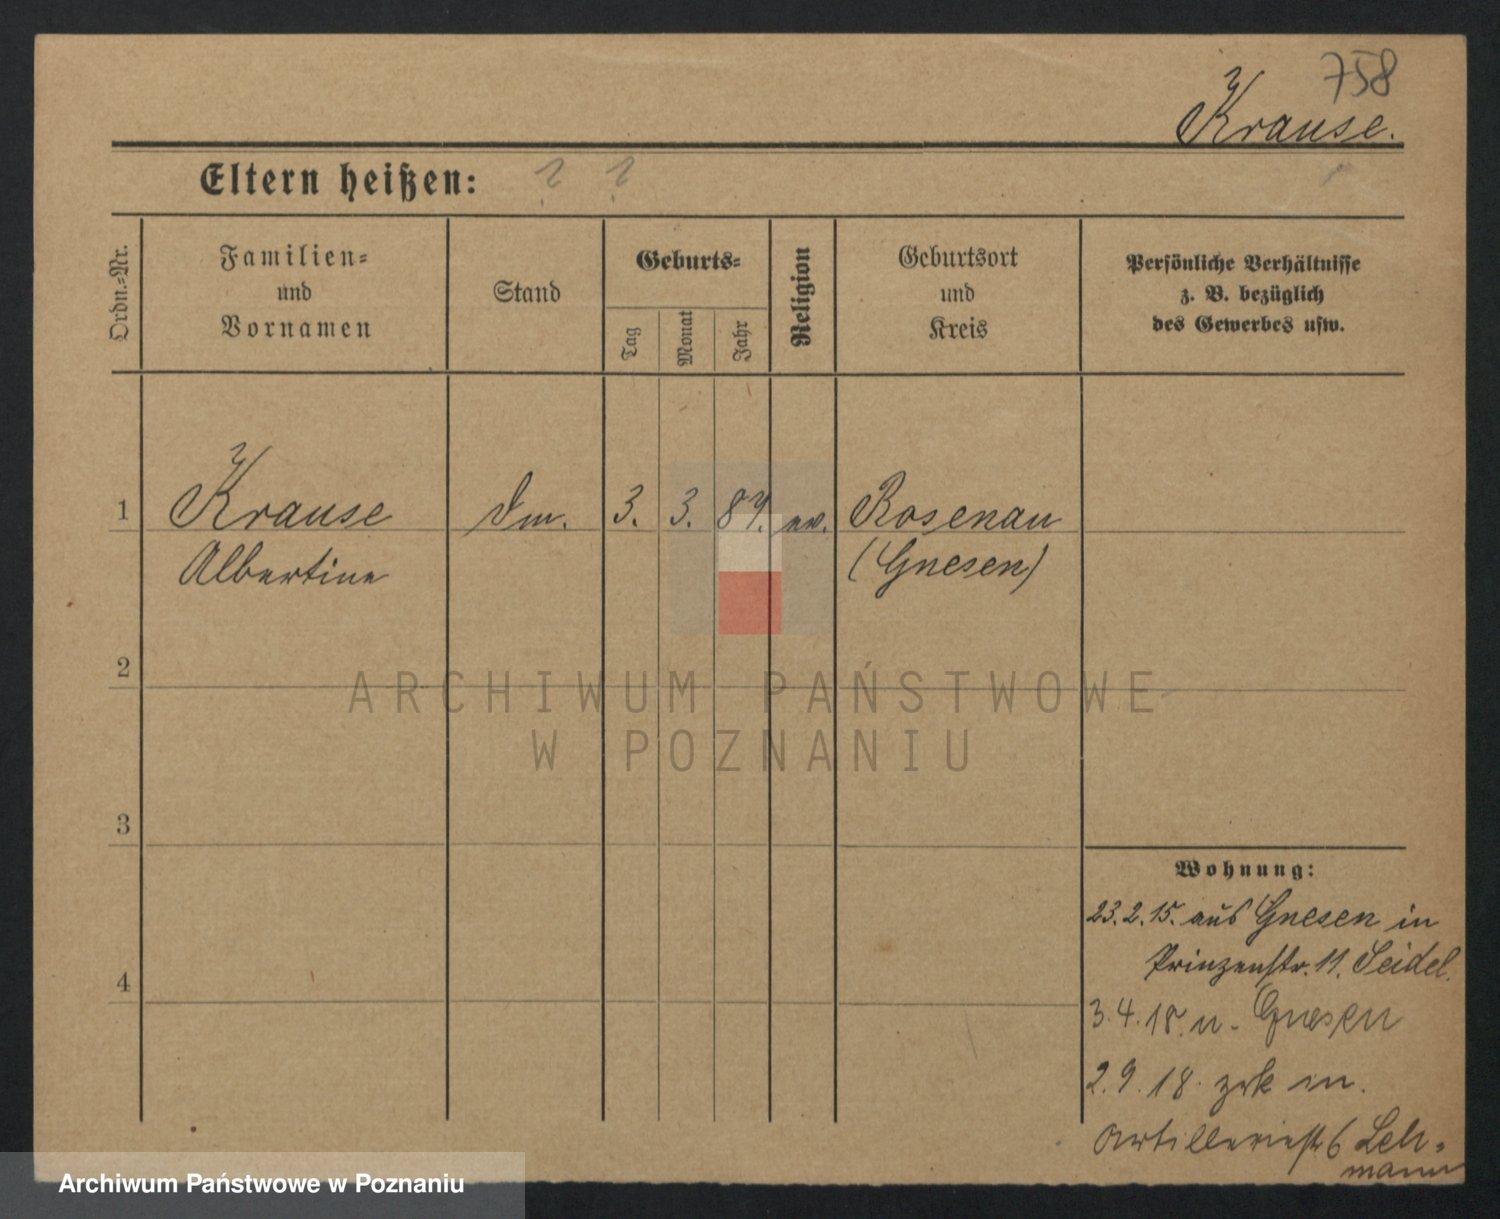 758
Krause.
Eltern heißen: ? ?
Ordn.-Nr.
Familien-
und
Vornamen
Stand
Geburts-
Tag
Monat
Jahr
Religion
Geburtsort
und
Kreis
Persönliche Verhältnisse
z. B. bezüglich
des Gewerbes usw.
1 Krause 3. 3. ev. Rosenau
Albertine (Gnesen)
2
ARCHIWUM PAŃSTWOWE
W POZNANIU
3
Wohnung:
23.2.15. aus Gnesen in
Prinzenstr. 11. Seidel.
4
3.4.18. n. Gnesen
2.9.18. zrk in.
Artilleriestr 6 Leh-
mann
Archiwum Państwowe w Poznaniu